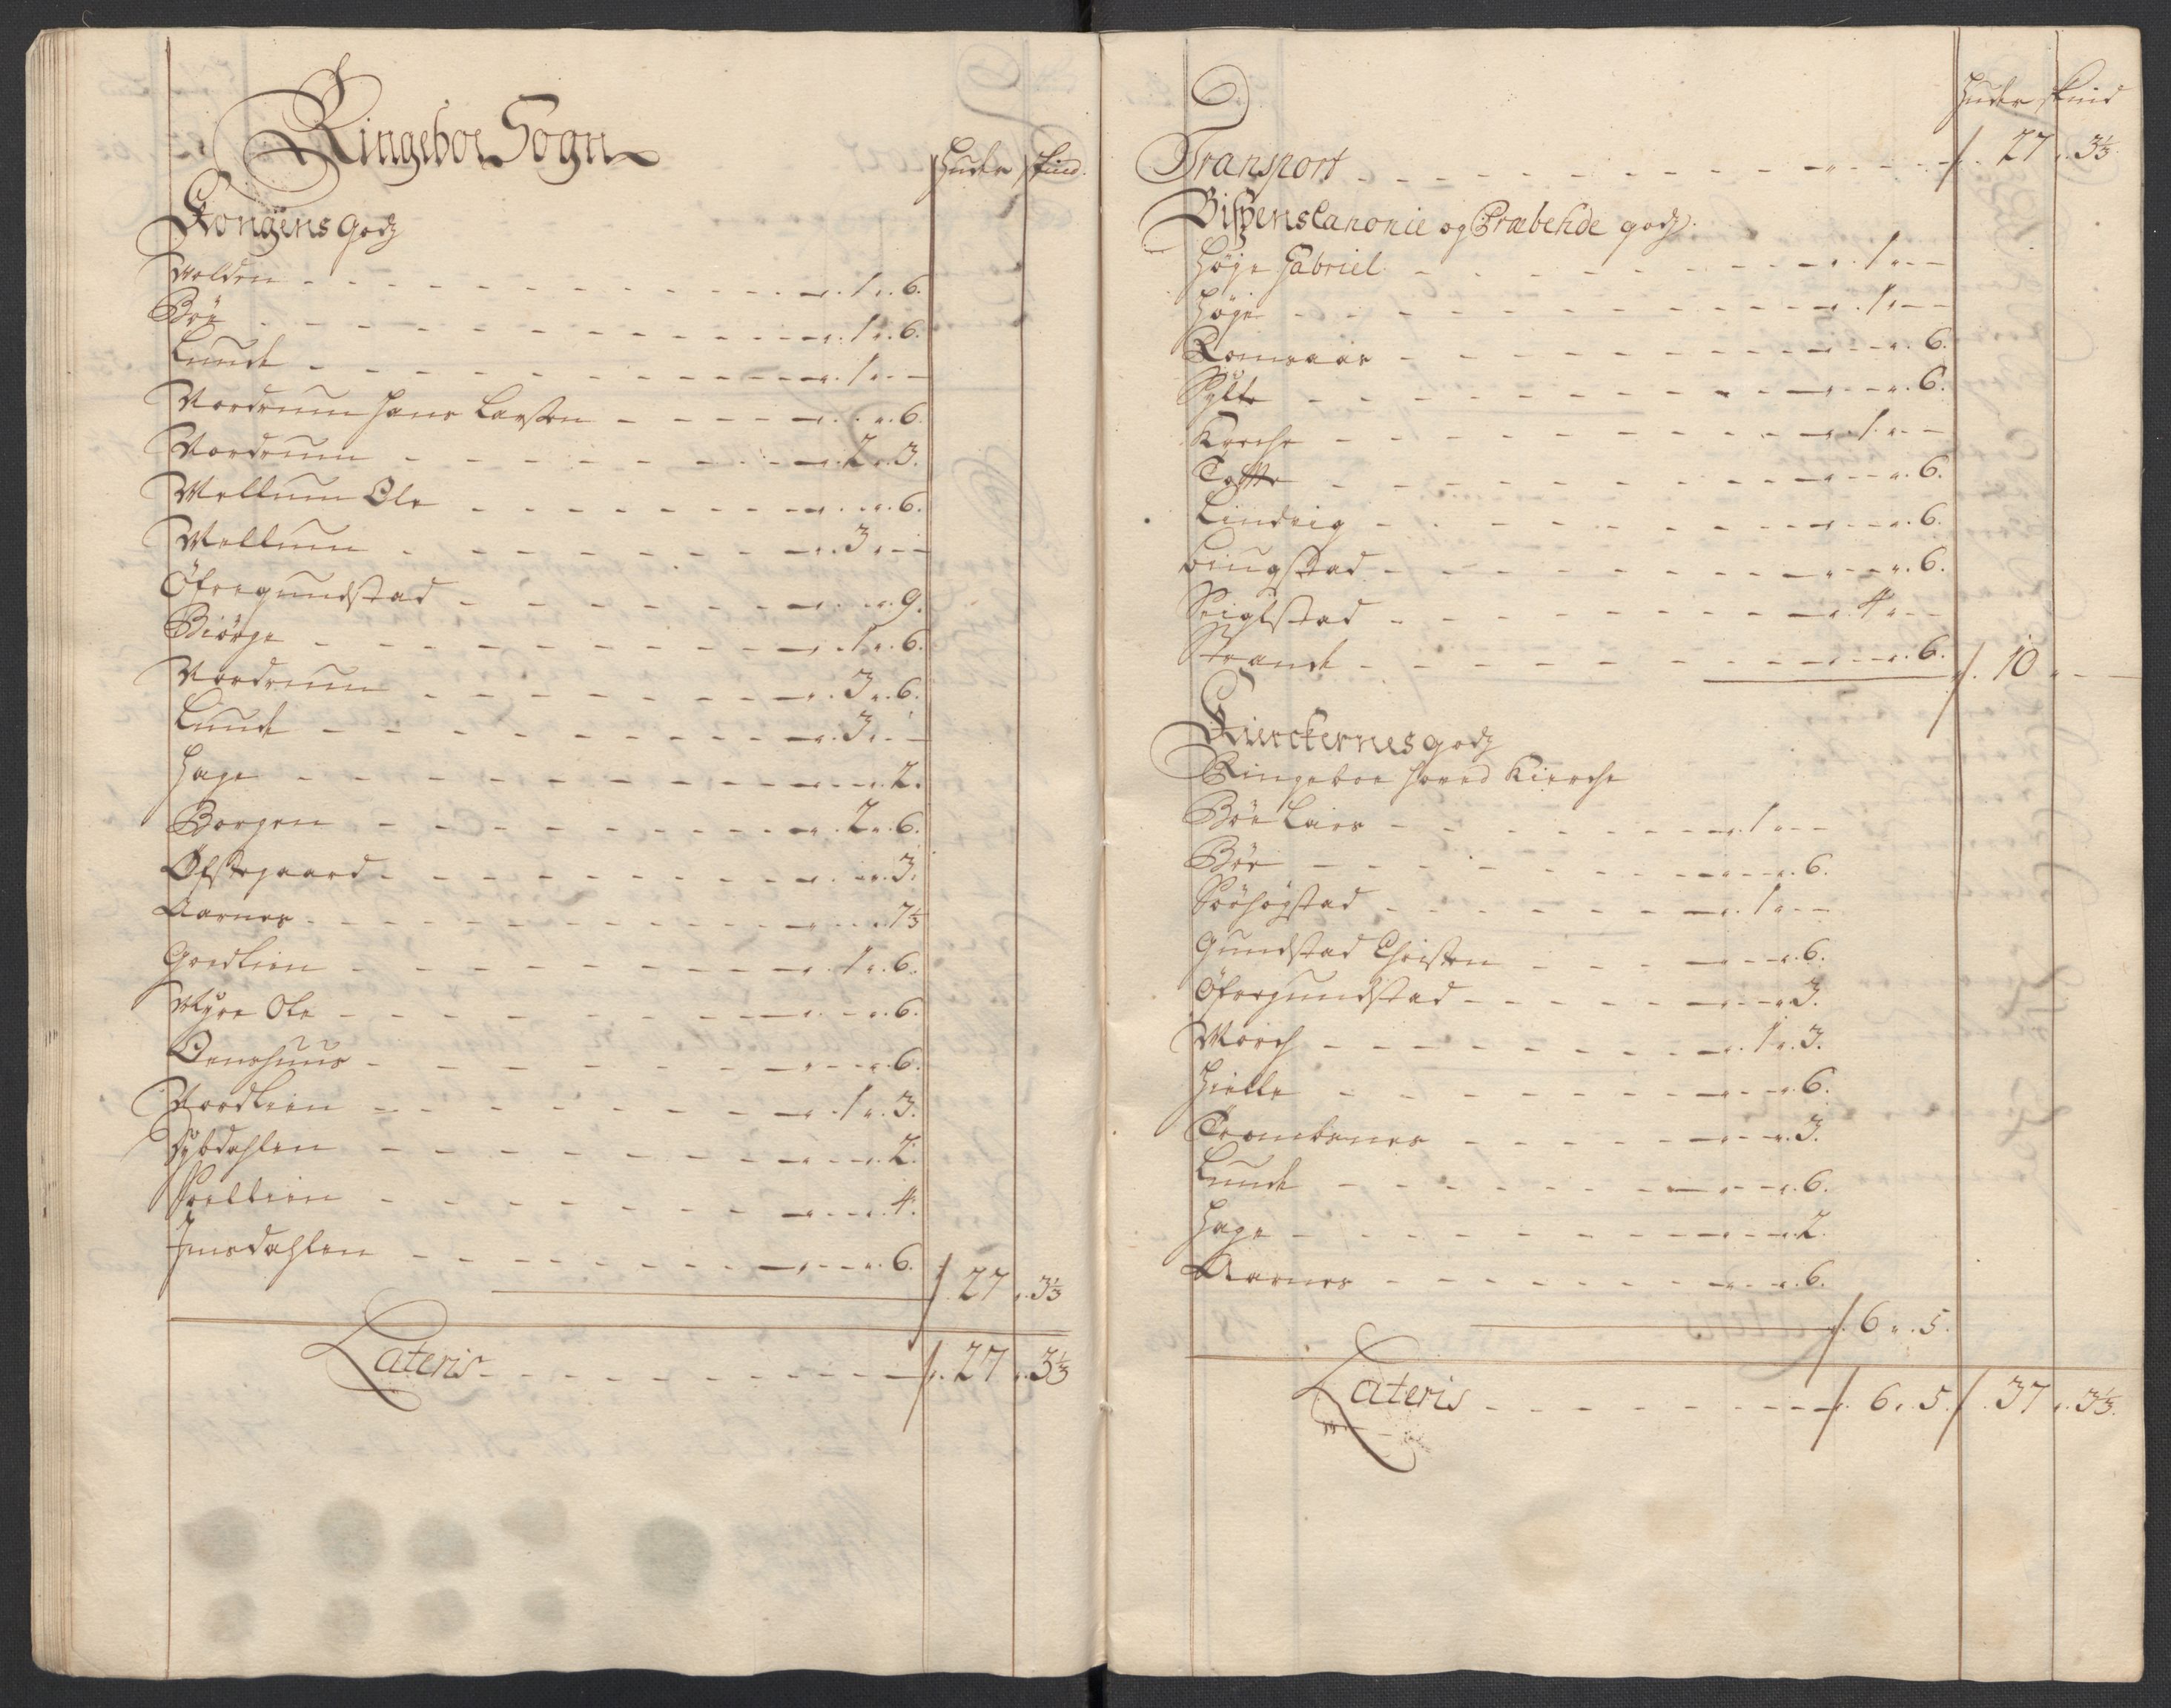 Ringeboe Sogn
Huder skind.
Kongens godz
Volden - - - 1 „ 6.
Böe - - - 1 „ 6.
Lunde - - - 1 „ -
Vordrum Hans Larsen - - - „ 6.
Vordrum - - - 2 „ 3.
Mellum Ole - - - „ 6.
Mellum - - - 3 „ -
Öfregundstad - - - „ 9.
Biörge - - - 1 „ 6.
Vordrum - - - 3 „ 6.
Lunde - - - 3 „ -
Hage - - - „ 2.
Borgen - - - 2 „ 6.
Öfstegaard - - - „ 3.
Aarnes - - - „ 7⅓
Goedlien - - - 1 „ 6.
Myre Ole - - - „ 6.
Oenshuus - - - „ 6.
Nordlien - - - 1 „ 3.
Dybdahlen - - - „ 2.
- - - „ 4.
Imsdahlen - - - „ 6.
27 „ 3⅓
Lateris - - - 27 „ 3⅓
Huder skind
Transport - - - 27 „ 3⅓.
Bispens Canonie og Præbende godz.
Höge Gabriel - - - 1 „ -
Höge - - - 1 „ -
Romsaas - - - „ 6.
Sylte - - - „ 6.
Kirche - - - 1 „ -
Tofte - - - „ 6.
Lindvig - - - „ 6.
Ringstad - - - „ 6.
Seiglstad - - - 4 „ -
Strande - - - „ 6.
10 „ -
Kierckernes godz
Ringeboe Hoved Kierche
Böe Lars - - - 1 „ -
Böe - - - „ 6.
Söhögstad - - - 1 „ -
Gundstad Christen - - - „ 6.
Öfergundstad - - - „ 3.
Morch - - - 1 „ 3.
Hielle - - - „ 6.
Trombenes - - - „ 3.
Lunde - - - „ 6.
Hage - - - „ 2.
Aarnes - - - „ 6.
6 „ 5.
Lateris - - - 6 „ 5. 37 „ 3⅓.